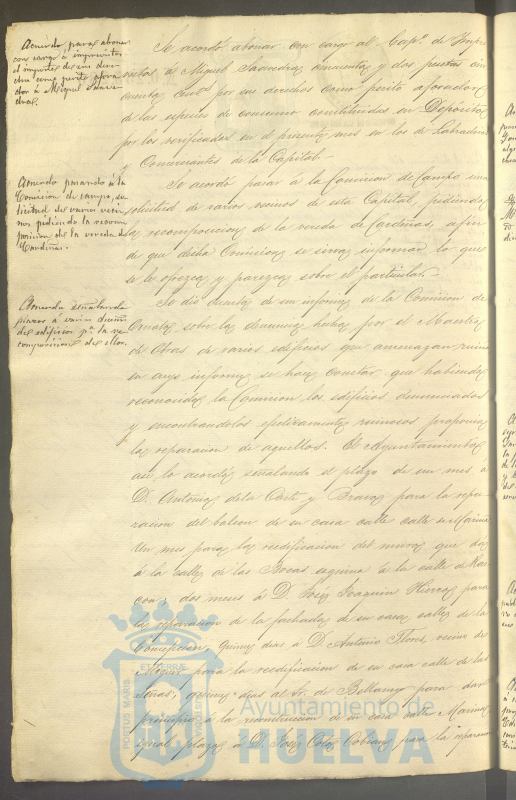 Acuerdo para abonar
con cargo á imprevistos
el importe de sus dere-
chos como perito afora-
dor á Miguel Saave-
dra.
Se acordó abonar con cargo al Cap.º de Impre
vistos á Miguel Saavedra cincuenta y dos pesetas cin
cuenta cent.s por sus derechos como perito aforador
de las especies de consumo constituidas en Depósito
por los verificados en el presente mes en los de Labradores
y Comerciantes de la Capital.
Acuerdo pasando á la
Comision de campo, so-
licitud de varios veci-
nos pidiendo la recom-
posicion de la vereda de
Cardeñas.
Se acordó pasar á la Comision de Campo una
solicitud de varios vecinos de esta Capital, pidiendo
la recomposicion de la vereda de Cardeñas, á fin
de que dicha Comision se sirva informar lo que
se le ofrezca y parezca sobre el particular.
Acuerdo señalando
plazos á varios dueños
de edificios p.ª la re
composicion de ellos.
Se dió cuenta de un informe de la Comision de
Ornato, sobre las denuncias hechas por el Maestro
de Obras de varios edificios que amenazan ruina
en cuyo informe se hace constar que habiendo
reconocido la Comision los edificios denunciados
y encontrandolos efectivamente ruinosos proponia
la reparacion de aquellos. El Ayuntamiento
así lo acordó señalando el plazo de un mes á
D. Antonio de la Corte y Bravo para la repa-
racion del balcon de su casa calle calle
Un mes para la reedificacion del muro que dá
á la calle de las Bocas esquina á la calle de
dos meses á D. José Joaquin Hierro para
la reparacion de la fachada de su casa calle de la
Concepcion, quince dias á D. Antonio Flores, vecino de
Moguer para la reedificacion de su casa calle de las
quince dias al Sr. de para dar
principio á la reconstruccion de su casa calle Marina,
igual plazo á D. José para la reparacion
PORTUS MARIS
ET TERRÆ
CUSTODIA
Ayuntamiento de
HUELVA